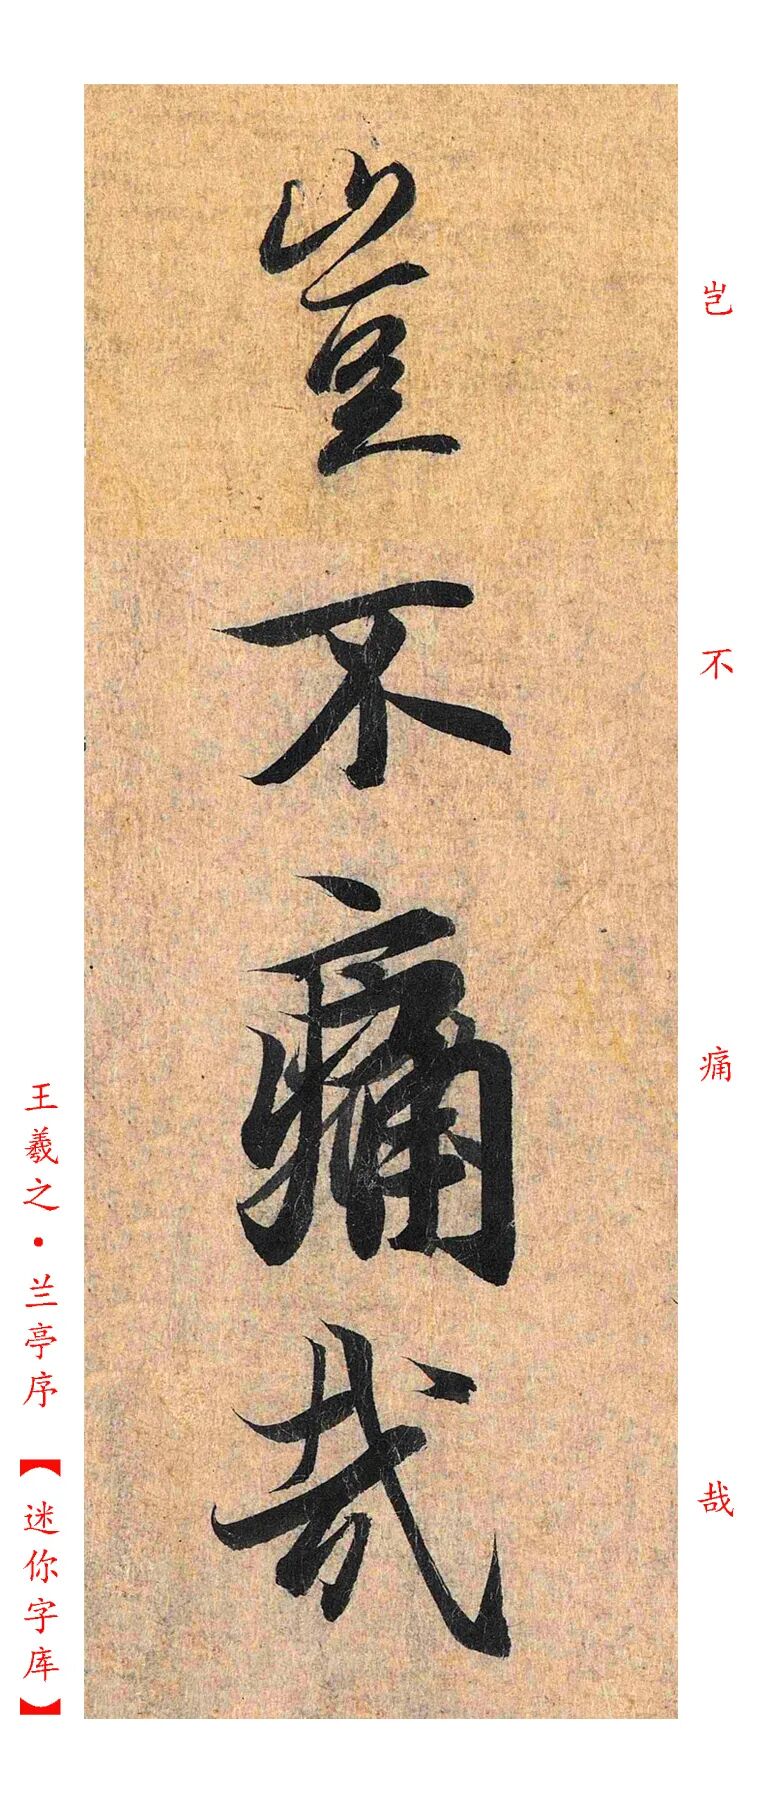 豈不痛哉
岂不痛哉
王羲之·兰亭序【迷你字库】